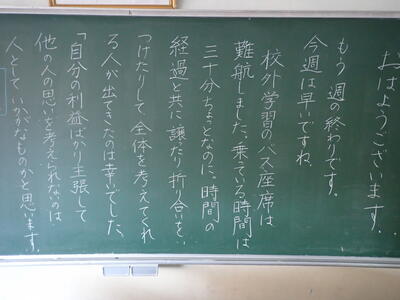 おはようございます。
もう 週の終わりです。
今週は早いですね。
校外学習のバス座席は
難航しました。乗っている時間は
三十分ちょっとなのに、時間の
経過と共に譲たり折り合いを
つけたりして、全体を考えてくれ
る人が出てきたのは幸いでした。
「自分の利益ばかり主張して
他の人の思いを考えられないのは
人として、いかがなものかと思います。